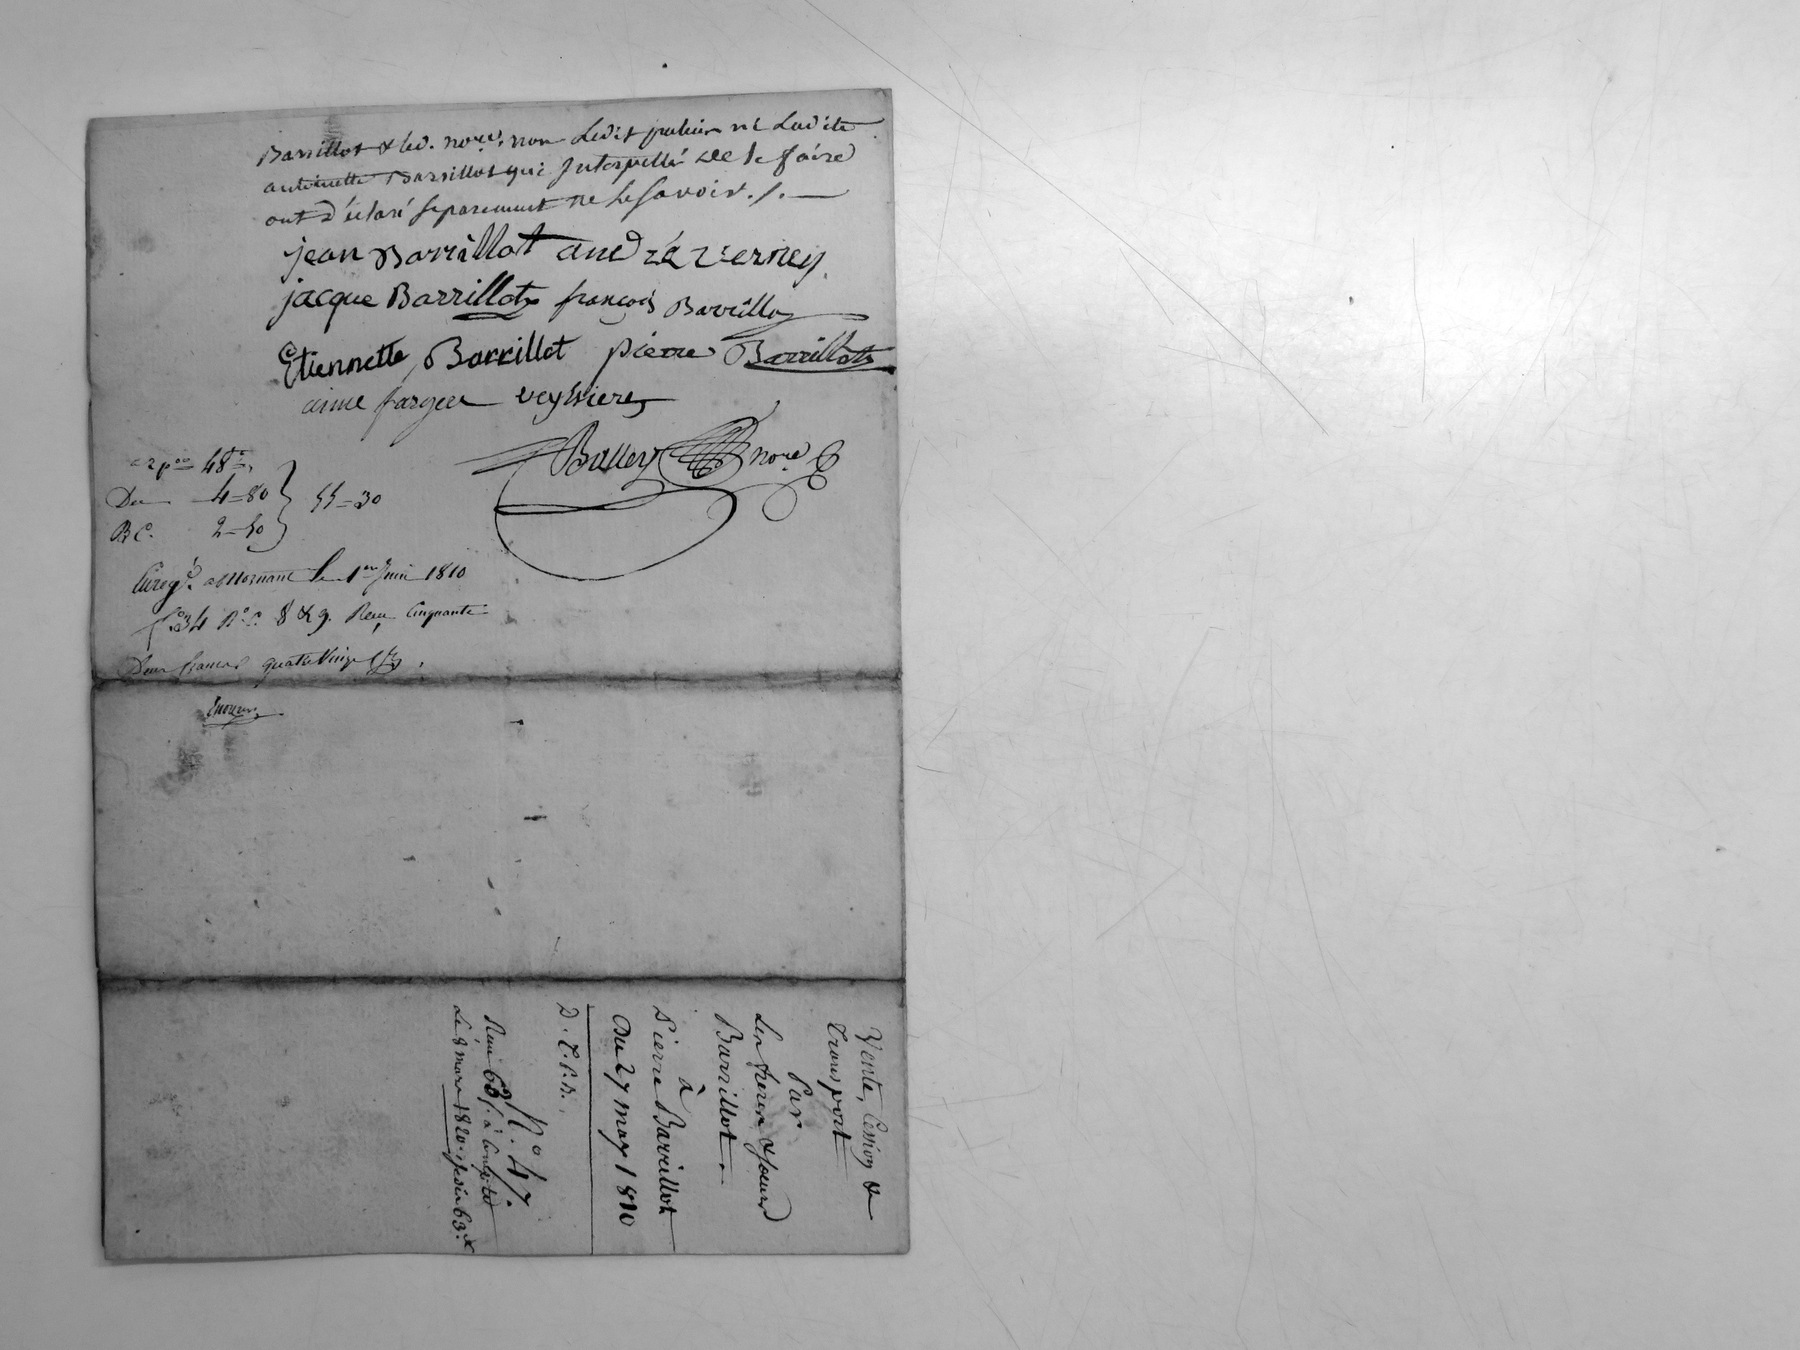 Barrillot & led. nore. non Ledit ni Ladite
antoinette Barrillot qui Interpellé de le faire
ont déclaré separement ne le savoir ./.
jean Barrillot andré verney
jacque Barrillot françois Barrillo
Etiennette Barrillot pierre Barrillot
aimé fargere veyssiere
Balley nore
2 p 48
Du 4=80
B.C. 2=50
55=30
Enregé. a Mornant le 1er Juin 1810
fo. 34 Ro. C. 8 & 9. Reçu Cinquante
Deux francs quatre Vingt
Vente, Cession &
Transport
Par
Les freres & soeurs
Barrillot
à
Pierre Barrillot
Du 27 may 1810
D. T. P. D.
No. 47.
Reçu 63f. à Compte
Le 8 mars 1820. 63.